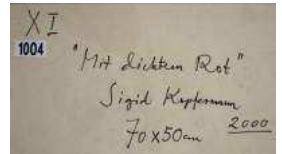 XI
1004
"Mit dichtem Rot"
Sigrid Kopfermann
70x50cm
2000